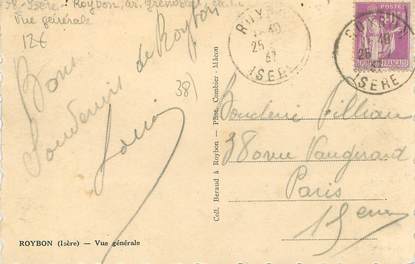 38 - Isère - Roybon, ar. Grenoble
Vue générale
12€
38)
Bons
Souvenirs de Roybon
ROYBON
25
37
ISERE
ROYBON
25
37
ISERE
38 rue Vaugirard
Paris
15eme
Coll. Beraud à Roybon — Phot. Combier Mâcon
ROYBON (Isère) — Vue générale